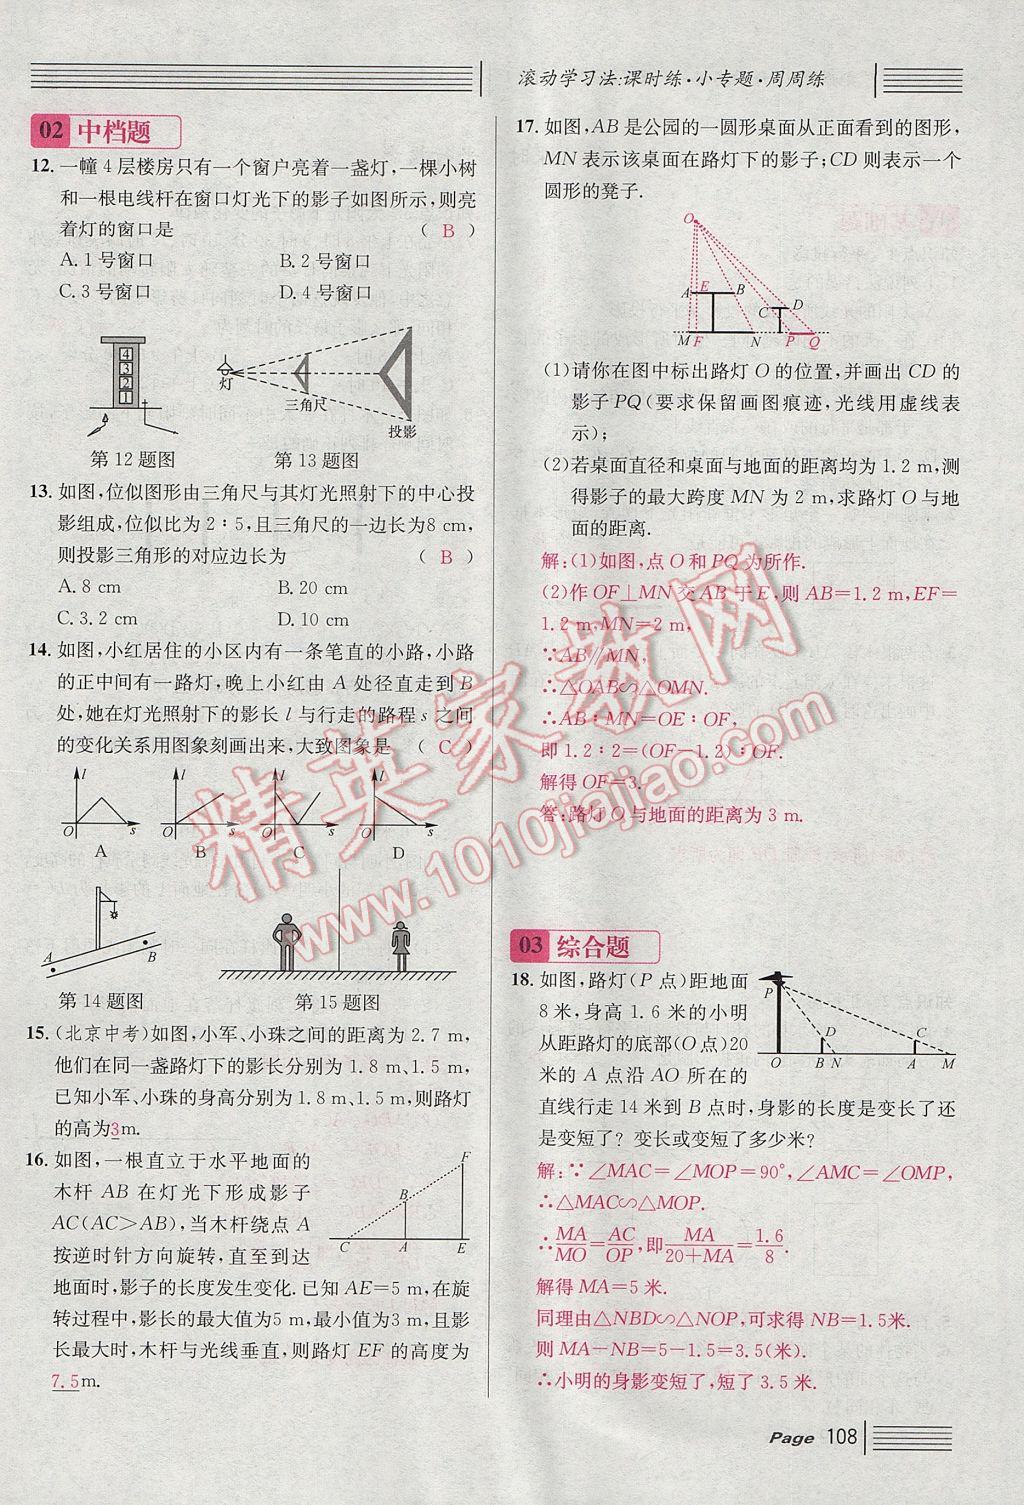 滚动学习法:课时练·小专题·周周练
02 中档题
12. 一幢4层楼房只有一个窗户亮着一盏灯,一棵小树
和一根电线杆在窗口灯光下的影子如图所示,则亮
着灯的窗口是 ( B )
A. 1号窗口 B. 2号窗口
C. 3号窗口 D. 4号窗口
4
3
2
1
灯
三角尺
投影
第12题图 第13题图
13. 如图,位似图形由三角尺与其灯光照射下的中心投
影组成,位似比为2∶5,且三角尺的一边长为8 cm,
则投影三角形的对应边长为 ( B )
A. 8 cm B. 20 cm
C. 3.2 cm D. 10 cm
14. 如图,小红居住的小区内有一条笔直的小路,小路
的正中间有一路灯,晚上小红由 A 处径直走到 B
处,她在灯光照射下的影长 l 与行走的路程 s 之间
的变化关系用图象刻画出来,大致图象是 ( C )
l l l l
O s O s O s O s
A B C D
A B
第14题图 第15题图
15. (北京中考)如图,小军、小珠之间的距离为 2.7 m,
他们在同一盏路灯下的影长分别为 1.8 m、1.5 m,
已知小军、小珠的身高分别为 1.8 m、1.5 m,则路灯
的高为3m.
16. 如图,一根直立于水平地面的
木杆 AB 在灯光下形成影子
AC(AC>AB),当木杆绕点 A
按逆时针方向旋转,直至到达
地面时,影子的长度发生变化.已知 AE=5 m,在旋
转过程中,影长的最大值为5 m,最小值为3 m,且影
长最大时,木杆与光线垂直,则路灯 EF 的高度为
7.5m.
F
B
C A E
17. 如图,AB 是公园的一圆形桌面从正面看到的图形,
MN 表示该桌面在路灯下的影子;CD 则表示一个
圆形的凳子.
O
A E B
C D
M F N P Q
(1)请你在图中标出路灯 O 的位置,并画出 CD 的
影子 PQ(要求保留画图痕迹,光线用虚线表
示);
(2)若桌面直径和桌面与地面的距离均为 1.2 m,测
得影子的最大跨度 MN 为 2 m,求路灯 O 与地
面的距离.
解:(1)如图,点 O 和 PQ 为所作.
(2)作 OF⊥MN 交 AB 于 E,则 AB=1.2 m,EF=
1.2 m,MN=2 m,
∵AB∥MN,
∴△OAB∽△OMN.
∴AB∶MN=OE∶OF,
即 1.2∶2=(OF-1.2)∶OF.
解得 OF=3.
答:路灯 O 与地面的距离为 3 m.
03 综合题
18. 如图,路灯(P 点)距地面
8 米,身高 1.6 米的小明
从距路灯的底部(O 点)20
米的 A 点沿 AO 所在的
直线行走 14 米到 B 点时,身影的长度是变长了还
是变短了? 变长或变短了多少米?
P
D C
O B N A M
解:∵∠MAC=∠MOP=90°,∠AMC=∠OMP,
∴△MAC∽△MOP.
∴MA/MO=AC/OP,即MA/(20+MA)=1.6/8.
解得 MA=5 米.
同理由△NBD∽△NOP,可求得 NB=1.5米.
则 MA-NB=5-1.5=3.5(米).
∴小明的身影变短了,短了 3.5 米.
精英家教网
www.1010jiajiao.com
Page 108